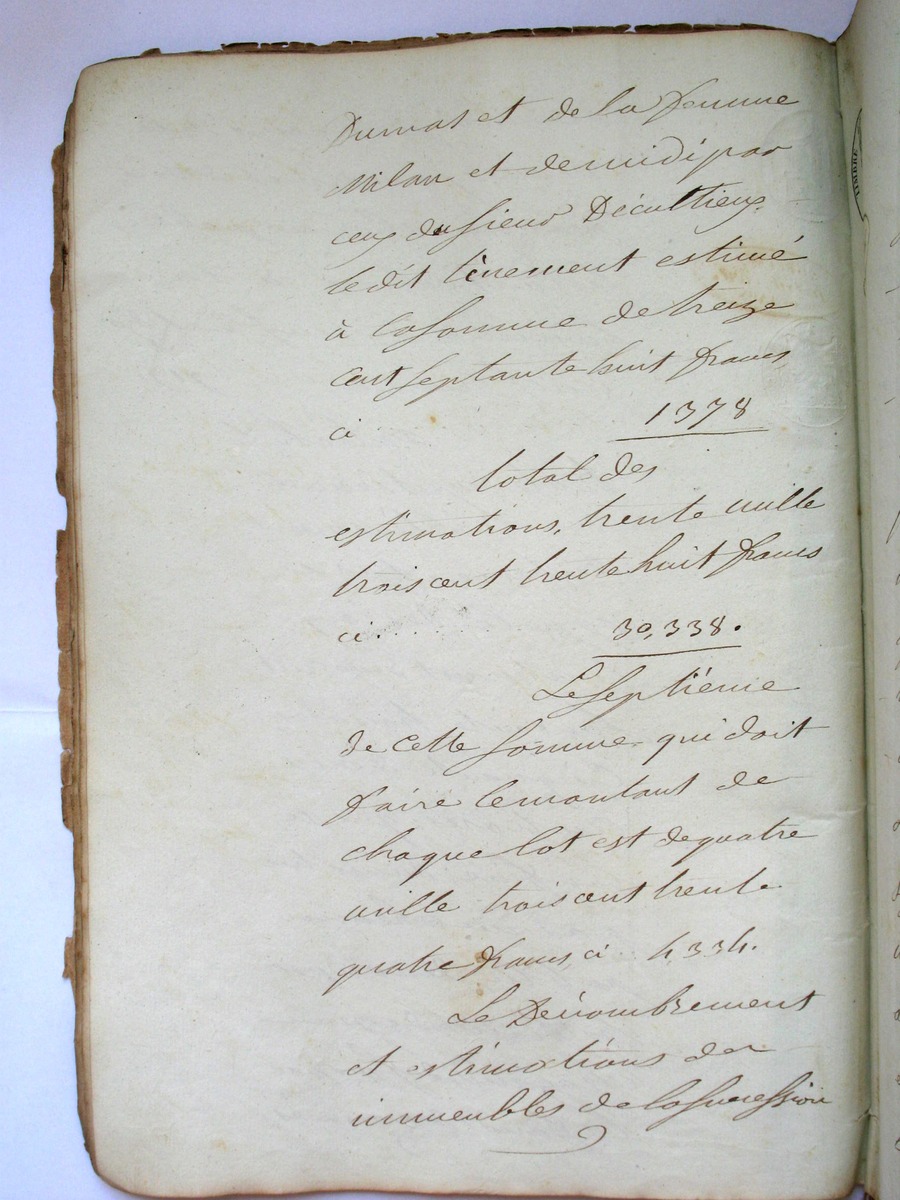 Dumas et de la femme
Milan et de midi par
ceux du sieur Décultieux.
le dit tènement estimé
à la somme de treize
cent septante huit francs
ci 1378
total des
estimations, trente mille
trois cent trente huit francs
ci.......... 30,338.
Le septième
de cette somme qui doit
faire le montant de
chaque lot est de quatre
mille trois cent trente
quatre francs, ci.. 4,334.
Le Dénombrement
et estimations des
immeubles de la succession
TIMBRE